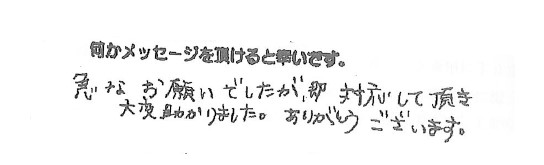 何かメッセージを頂けると幸いです。
急なお願いでしたが、即対応して頂き
大変助かりました。ありがとうございます。